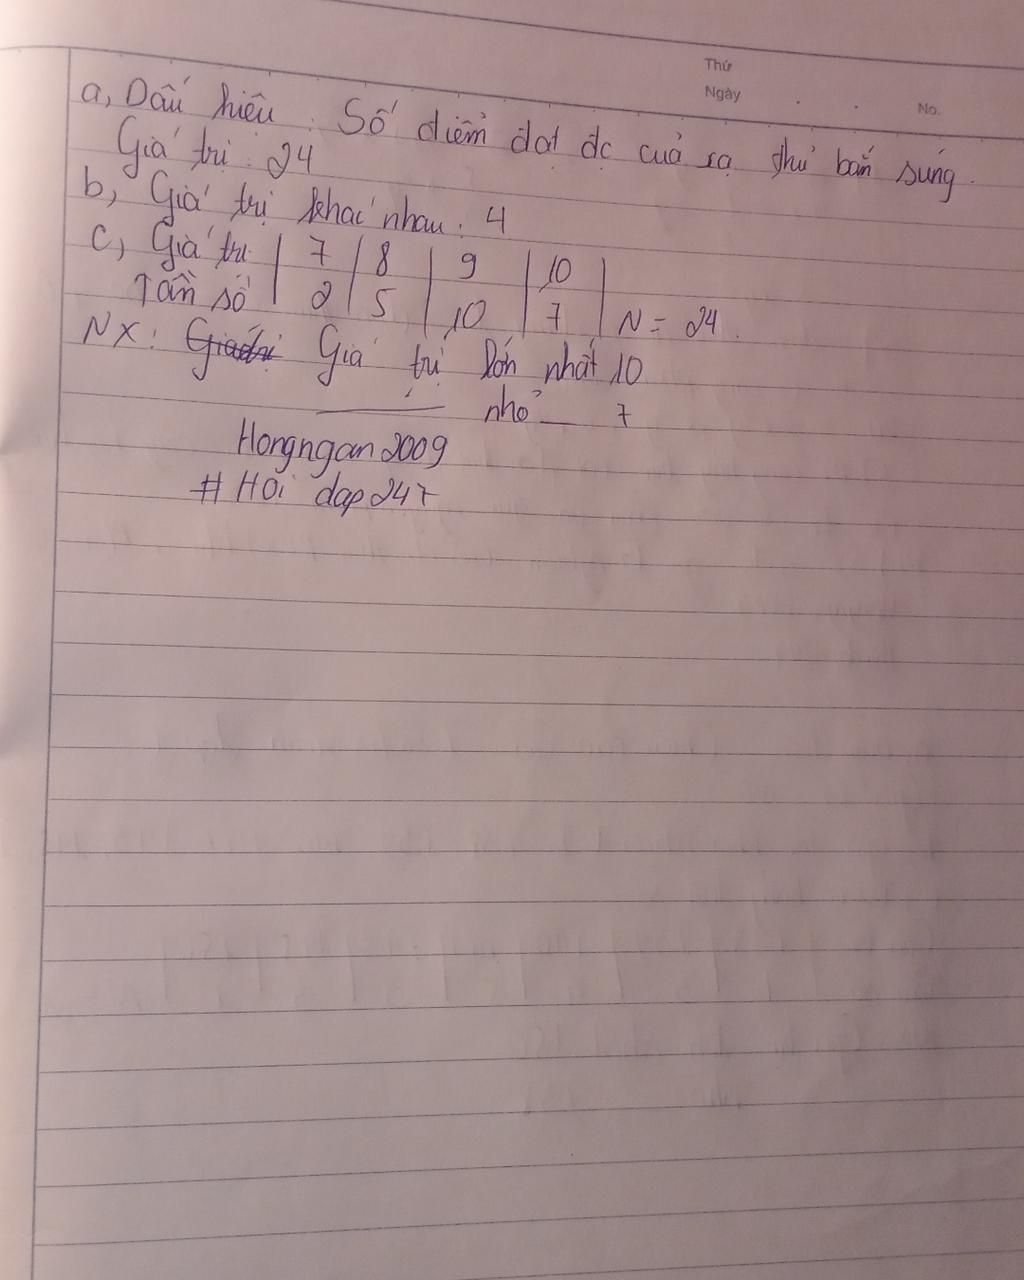 Thứ
Ngày . . No.
a, Dấu hiệu : Số điểm đạt đc của xạ thủ bắn súng.
Giá trị : 24
b, Giá trị khác nhau : 4
c, Giá trị | 7 | 8 | 9 | 10 |
Tần số | 2 | 5 | 10 | 7 | N = 24.
NX : Giá trị Giá trị lớn nhất 10
—— nhỏ — 7
Hongngan2009
# Hoi dap247